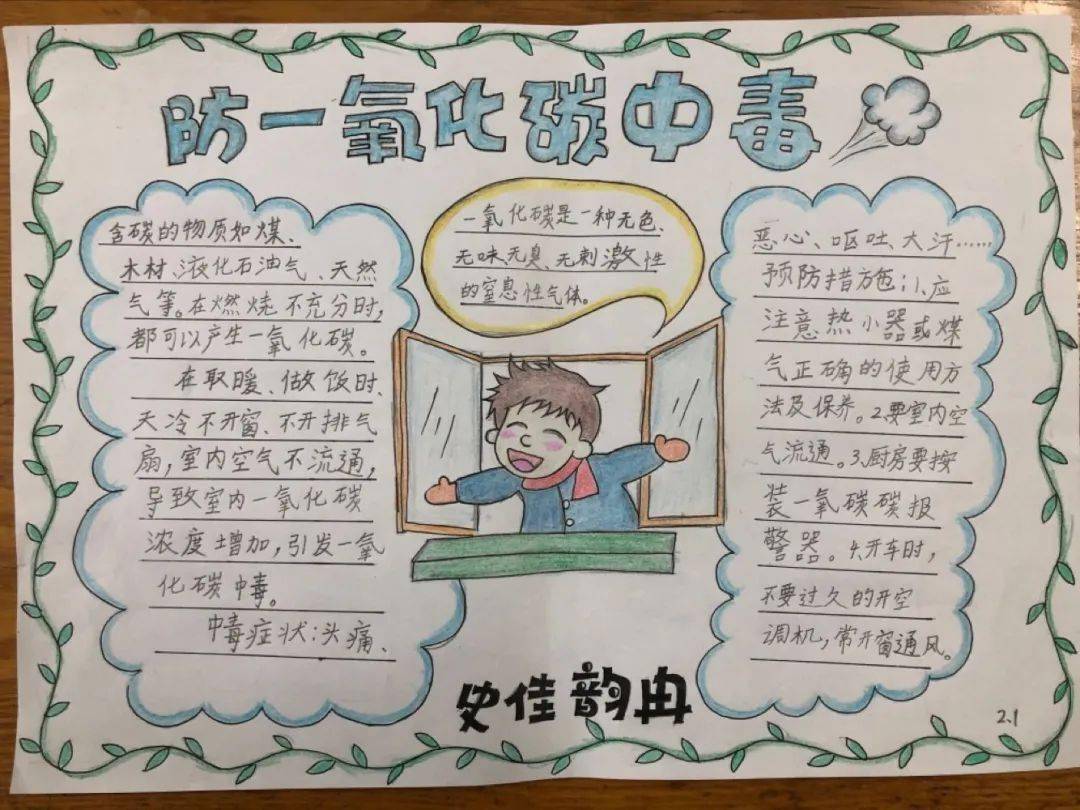 防一氧化碳中毒
含碳的物质如煤、
木材、液化石油气、天然
气等。在燃烧不充分时,
都可以产生一氧化碳。
在取暖、做饭时、
天冷不开窗、不开排气
扇,室内空气不流通,
导致室内一氧化碳
浓度增加,引发一氧
化碳中毒。
中毒症状:头痛、
一氧化碳是一种无色、
无味无臭、无刺激性
的窒息性气体。
恶心、呕吐、大汗……
预防措方色;1、应
注意热小器或煤
气正确的使用方
法及保养。2.要室内空
气流通。3.厨房要按
装一氧碳碳报
警器。4.开车时,
不要过久的开空
调机,常开窗通风。
史佳韵冉
2.1